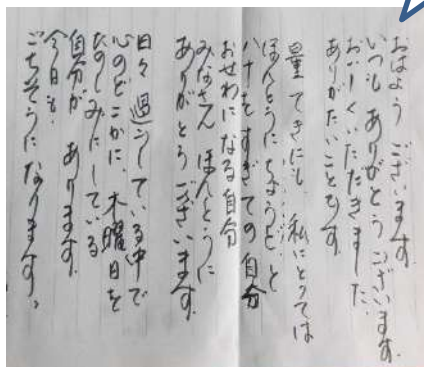 おはようございます。
いつも ありがとう ございます。
おいしくいただきました。
ありがたいことです。
量 てきにも 私にとっては
ほんとうにちょうど、と
ハ十をすぎての自分
おせわになる自分
みなさん ほんとうに
ありがとう ございます。
日々 過ごしている中で
心のどこかに、木曜日を
たのしみにしている
自分が あります。
今日も
ごちそうに なります。